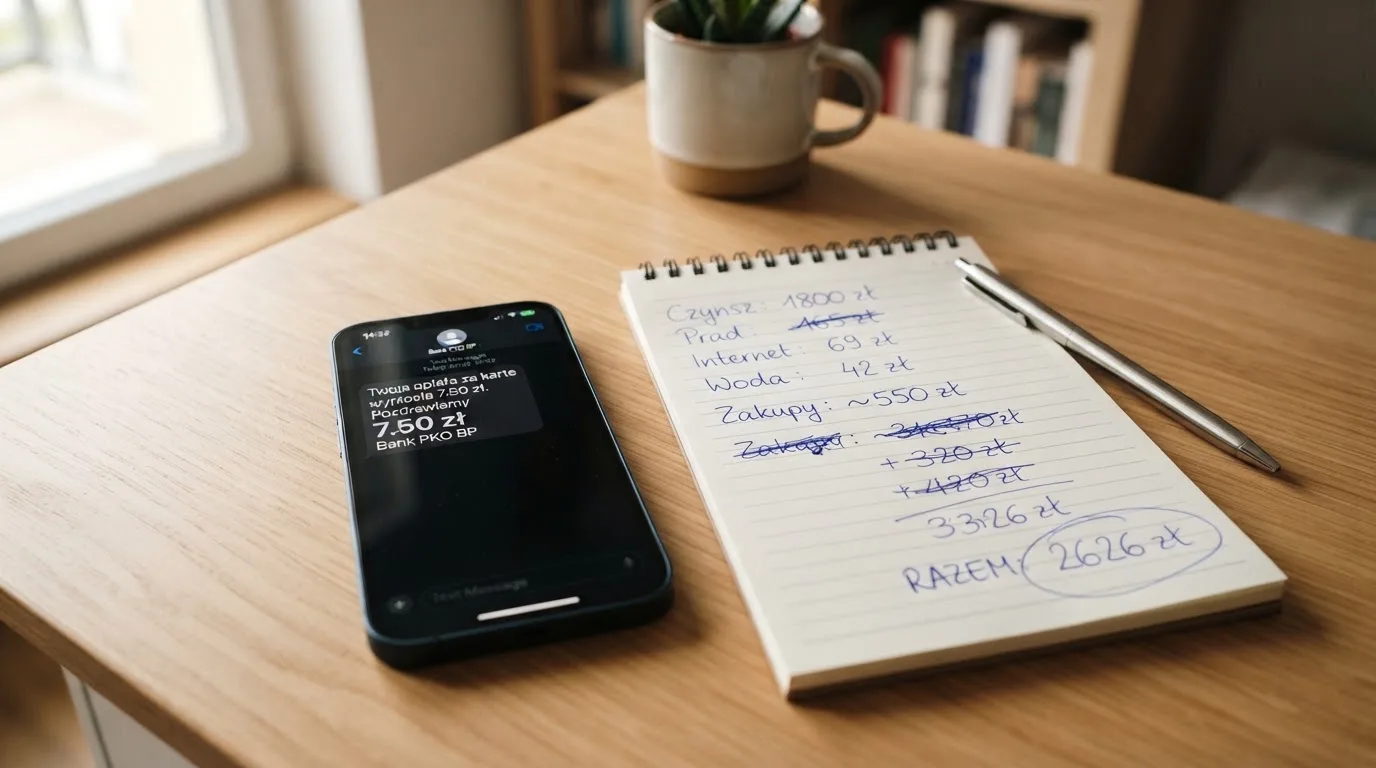 14:37
Twoja opłata za kartę
wyniosła 7.50 zł.
Pozdrawiamy
7.50 zł
Bank PKO BP
Text Message
Czynsz: 1800 zł
Prad: 165 zł
Internet: 69 zł
Woda: 42 zł
Zakupy: ~550 zł
zł
+ 320 zł
+ 420 zł
3326 zł
RAZEM: 2626 zł